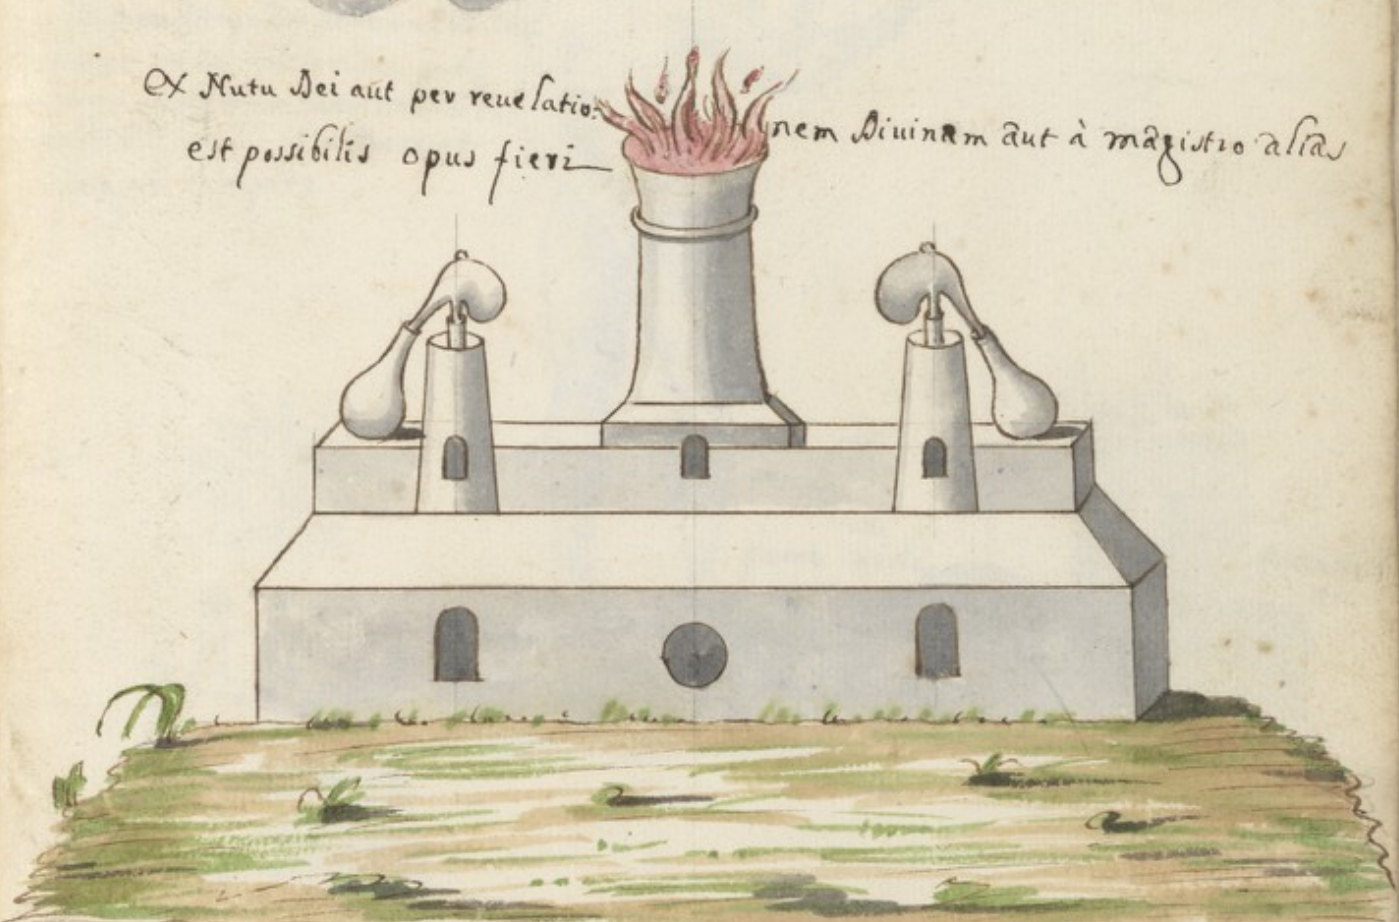 Ex Nutu Dei aut per reuelatio: nem Diuinam aut à magistro alias
est possibilis opus fieri